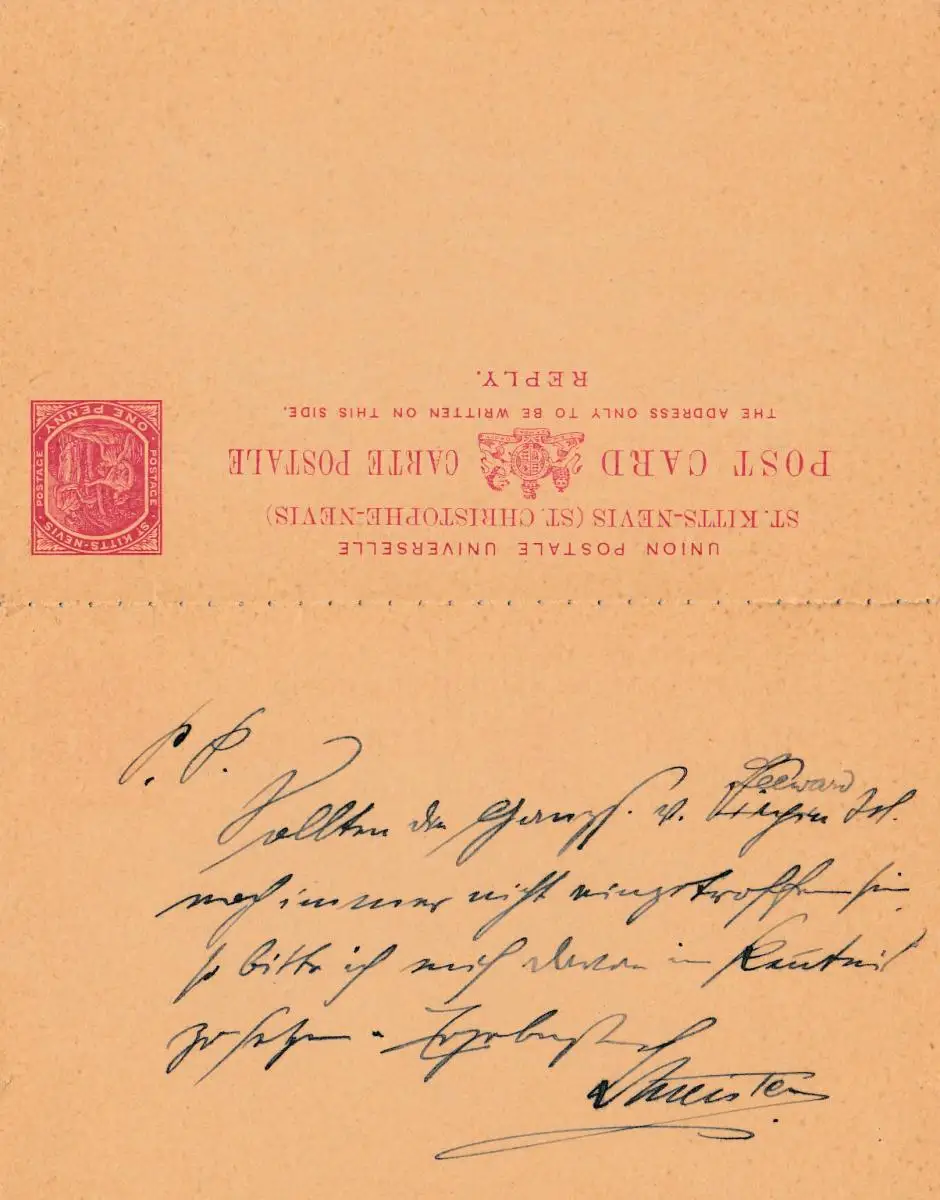 UNION POSTALE UNIVERSELLE
ST. KITTS-NEVIS (ST. CHRISTOPHE-NEVIS)
POST CARD CARTE POSTALE
THE ADDRESS ONLY TO BE WRITTEN ON THIS SIDE.
REPLY.
ST KITTS-NEVIS
POSTAGE
POSTAGE
ONE PENNY
P. P.
Leeward
Sollten die Ganzs. v. Isl.
noch immer nicht eingetroffen sein
so bitte ich mich davon in Kentnis
zu setzen - Ergebenst